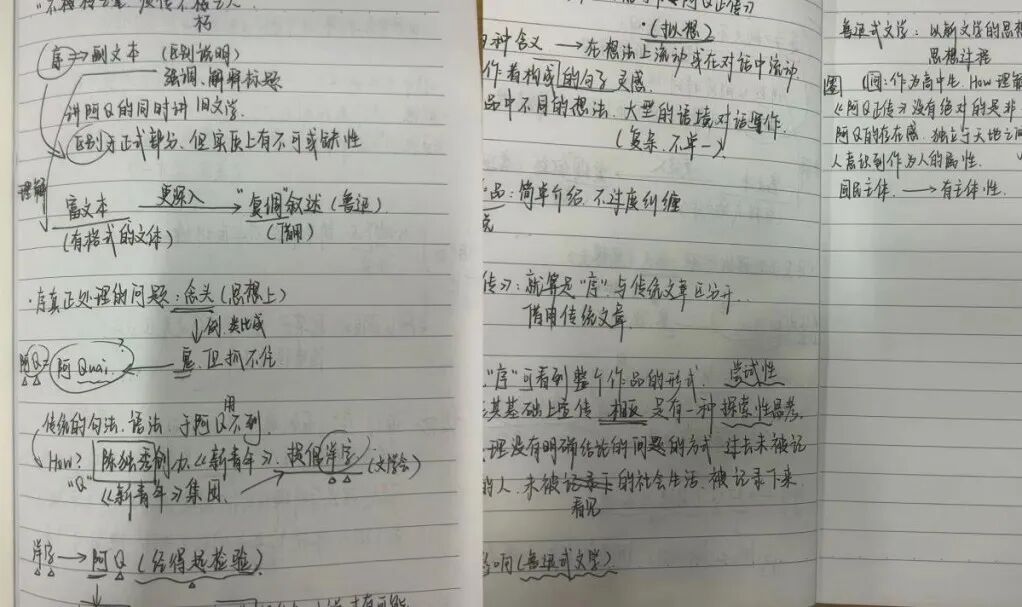 朽
序→副文本 (区别说明)
强调、解释标题
讲阿Q的同时讲旧文学.
区别于正式部分、但实际上有不可或缺性
理解
富文本 更深入→“复调”叙述(鲁迅)
(有格式的文体) (借用)
·序真正处理的问题:念头(思想上)
↓例.类比成
阿Q= 阿Quai. ← 鬼、但抓不住
用
传统的句法、语法、于阿Q不列.
How? 陈独秀创办《新青年》.提倡洋字(文学会)
“Q” 《新青年》集团.
洋字→阿Q(经得起检验)
(拟想)
种含义 →在想法上流动或在对话中流动.
作者构成的句子 灵感.
品中不同的想法、大型的语境对话写作.
(复杂、不单一)
品:简单介绍.不过度纠缠
传》:就算是“序”.与传统文章区分开..
借用传统文章.
“序”可看到整个作品的形式. 尝试性
其基础上宣传 相反 是有一种探索性思考.
理没有明确结论的问题的方式 过去未被记
的人.未被记录下的社会生活.被记录下来.
看见
响(鲁迅式文学).
鲁迅式文学: 以新文学的思想
思想过程
圈 问:作为高中生.How理解
《阿Q正传》没有绝对的是非
阿Q的存在感 独立于天地之间
人意识到作为人的属性.
国民主体.→有主体性.